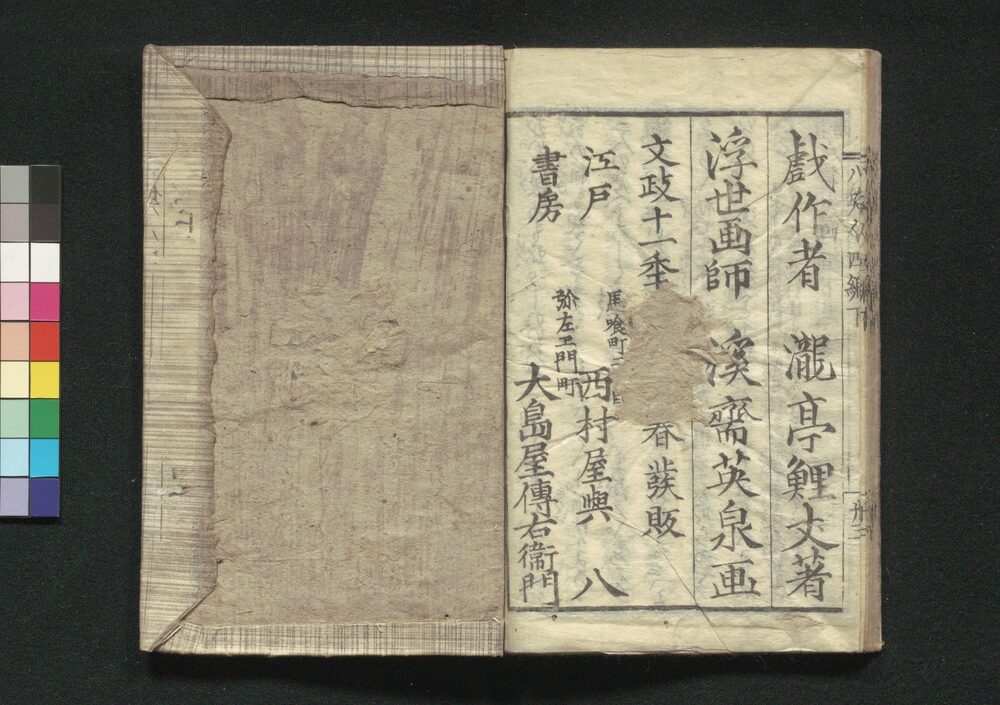 戯作者 瀧亭鯉丈著
浮世画師 溪斎英泉画
文政十一季 春發販
江戸 馬喰町二 西村屋與八
書房 弥左エ門町 大島屋傳右衛門